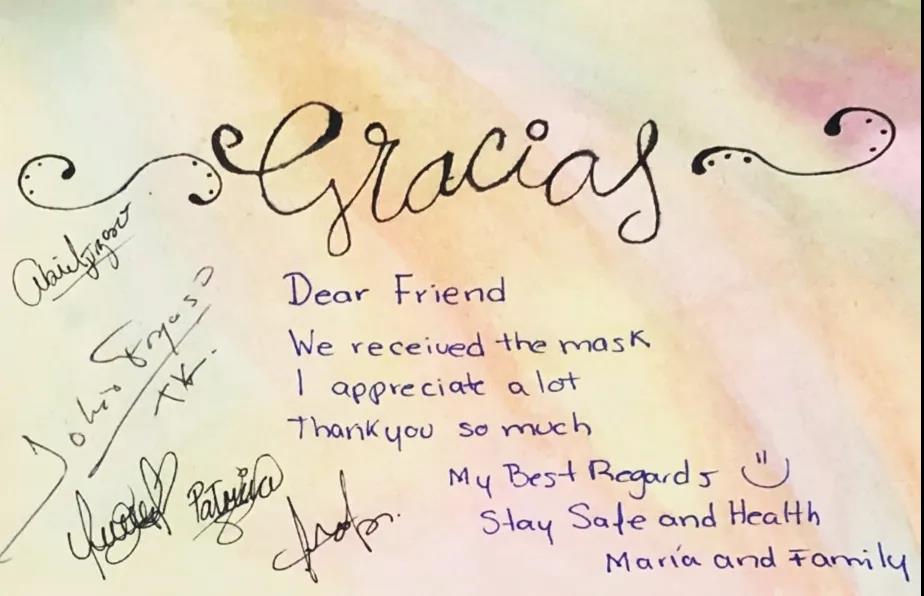 Gracias
Dear Friend
We received the mask
I appreciate a lot
Thank you so much
My Best Regards
Stay Safe and Health
María and Family
Patricia